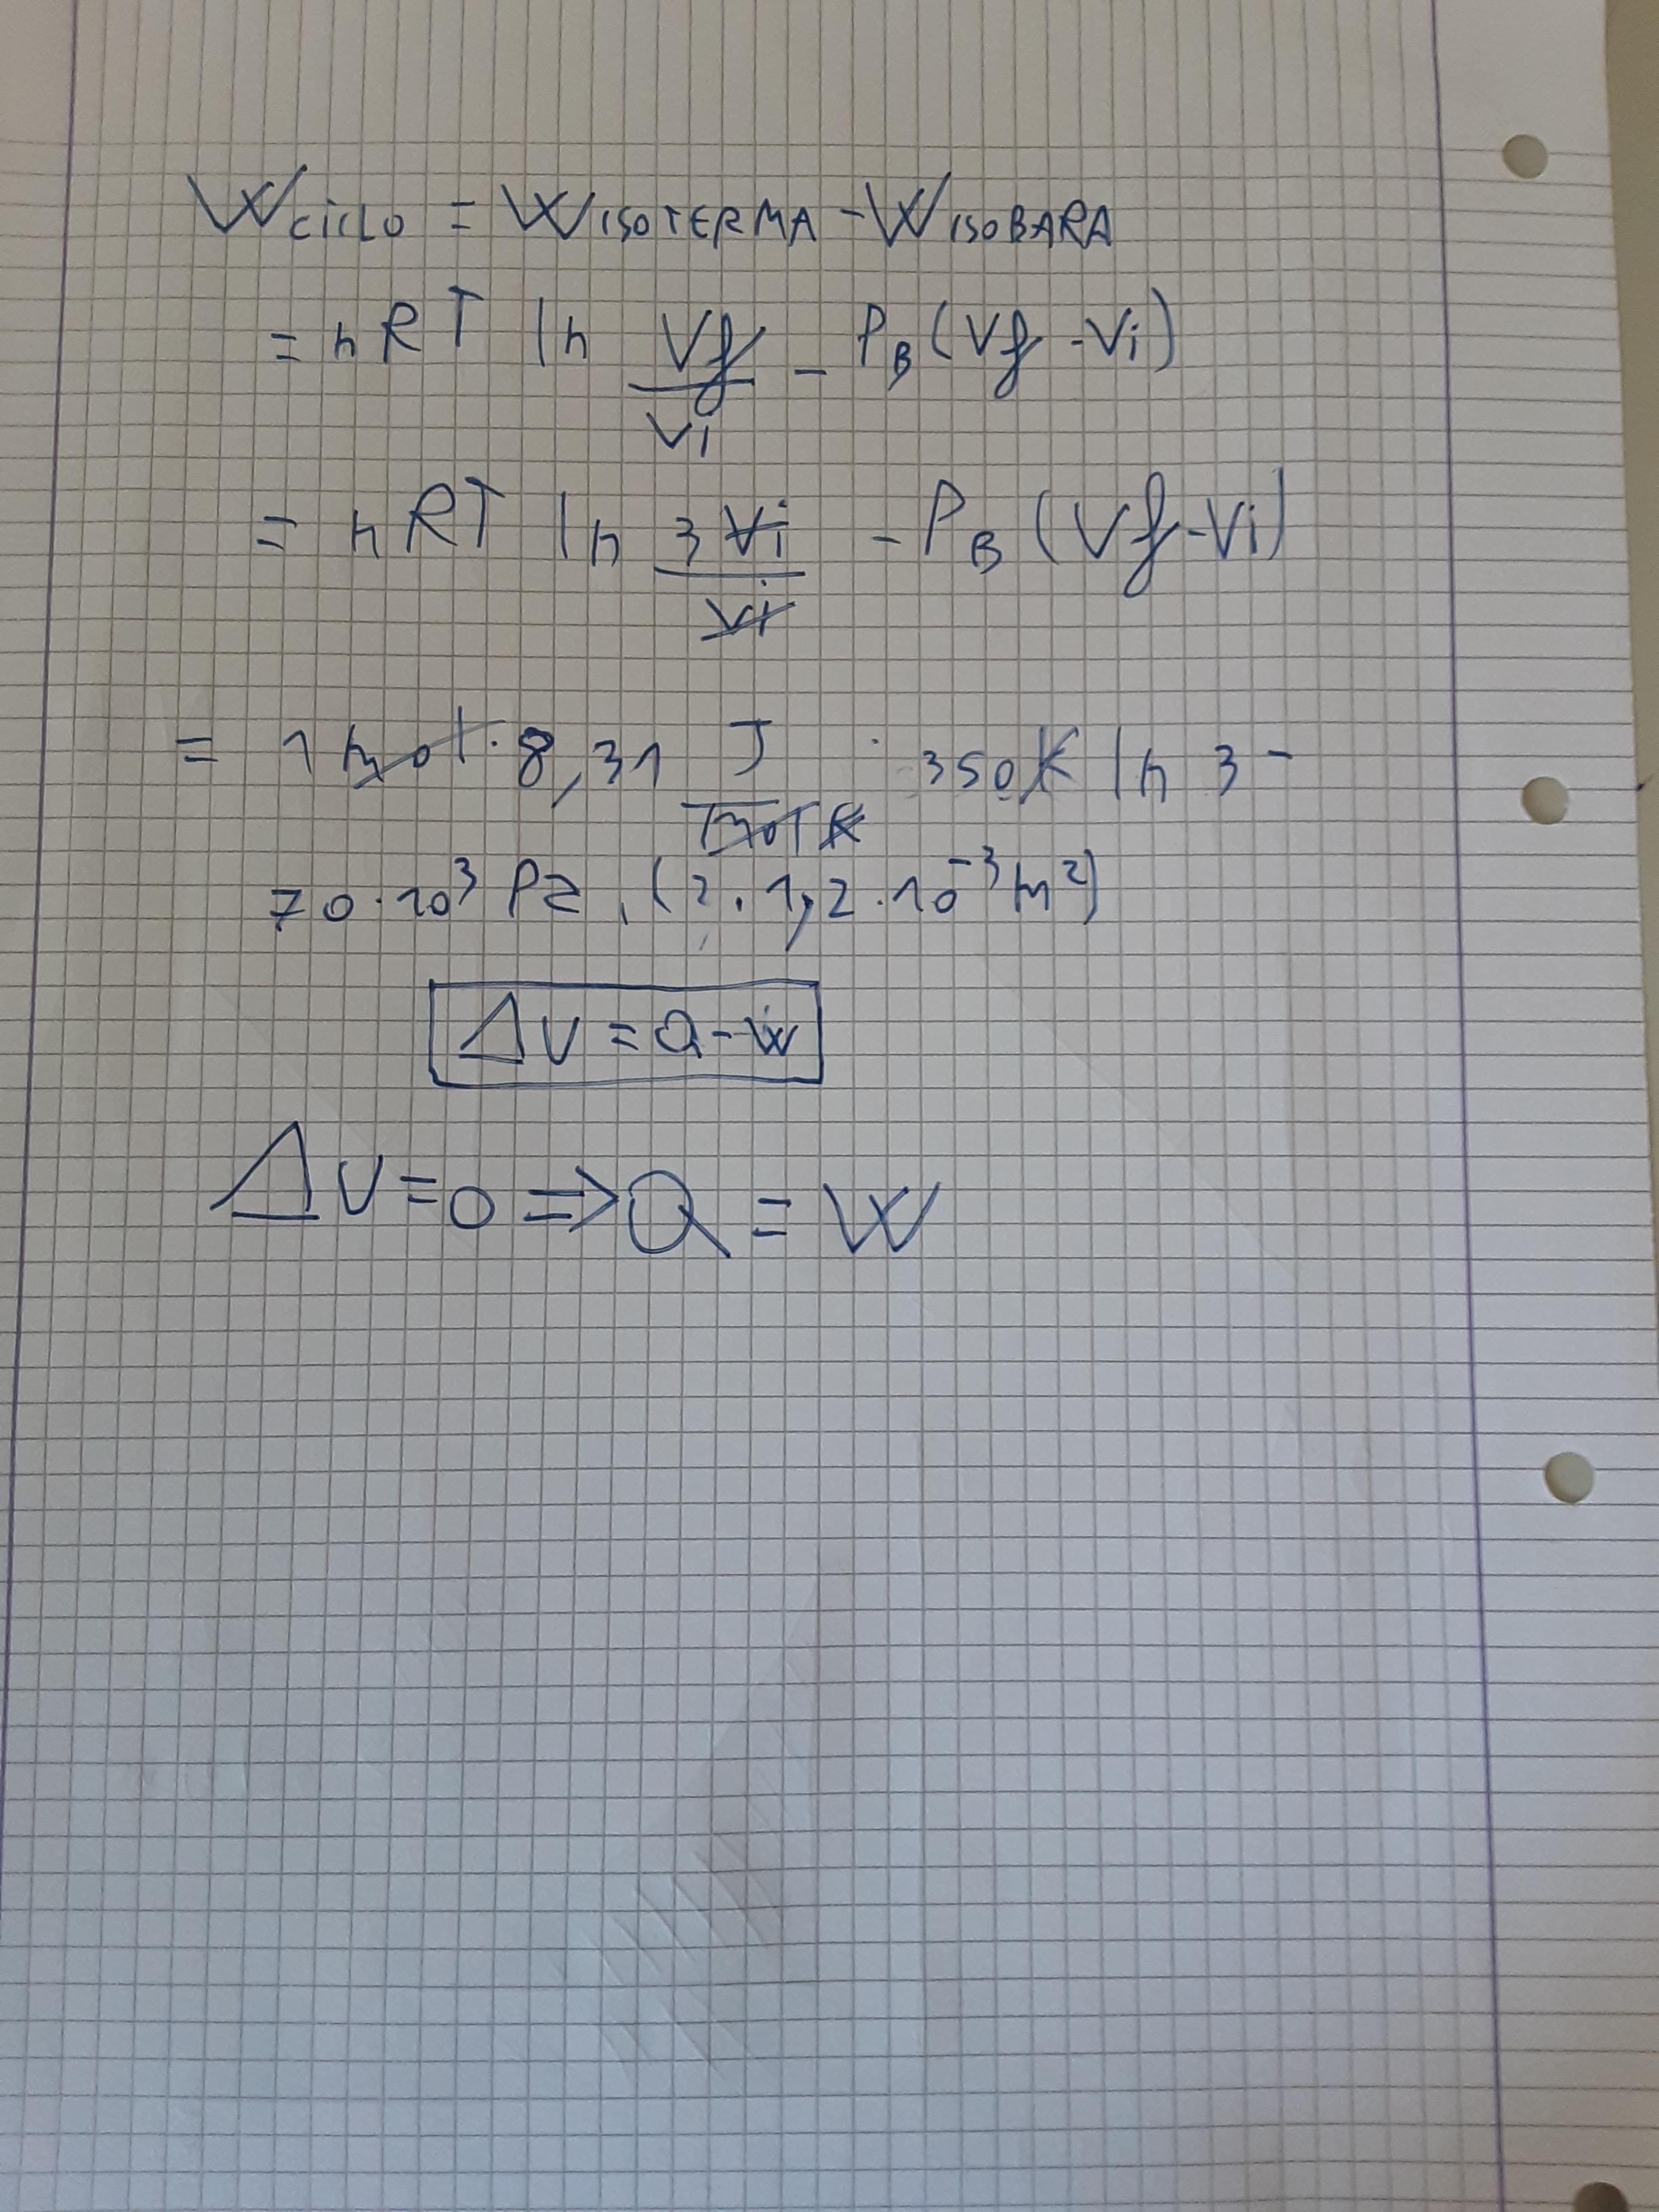 W CICLO = W ISOTERMA - W ISOBARA
= nRT ln Vf/Vi - PB (Vf - Vi)
= nRT ln 3Vi/Vi - PB (Vf - Vi)
= 1 mol · 8,31 J/mol K · 350K ln 3 -
70·10³ Pa · (2·1,2·10⁻³ m²)
ΔU = Q - W
ΔU = 0 => Q = W